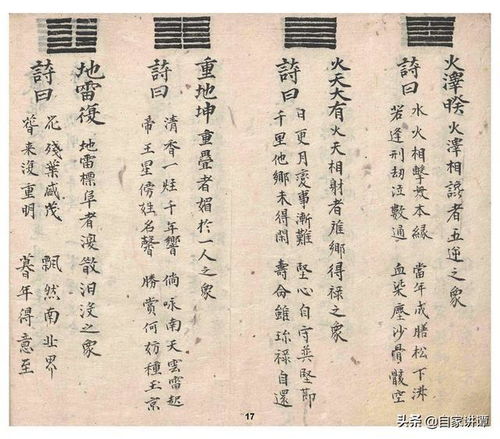 火澤睽 火澤相 者五逆之象
詩曰
水火相擊毋本緣 當年成 松下沸
若逢刑劫泣數通 血染塵沙骨骸空
火天大有 火天相射者離鄉得祿之象
詩曰
日更月变事漸難 堅心自守莫堅節
千里他鄉未得閑 壽命雖 祿自還
重地坤 重疊者媚於一人之象
詩曰
清香一炷千年響 倘咏南天雲雷起
帝王星傍姓名馨 勝賞何妨種玉京
地雷復 地雷標阜者 散汩沒之象
詩曰
花殘葉盛茂 飄然南北界
 来復重明 暮年得意至
17
头条 @自家讲谭